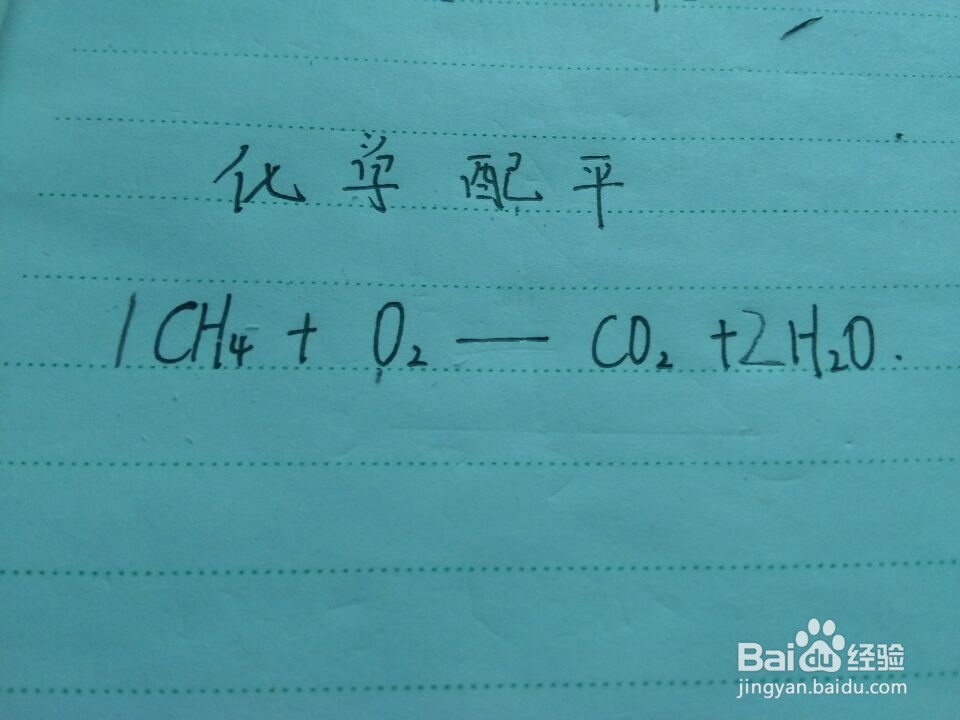 化学配平
1CH₄ + O₂ — CO₂ +2H₂O.
Baidu经验
jingyan.baidu.com